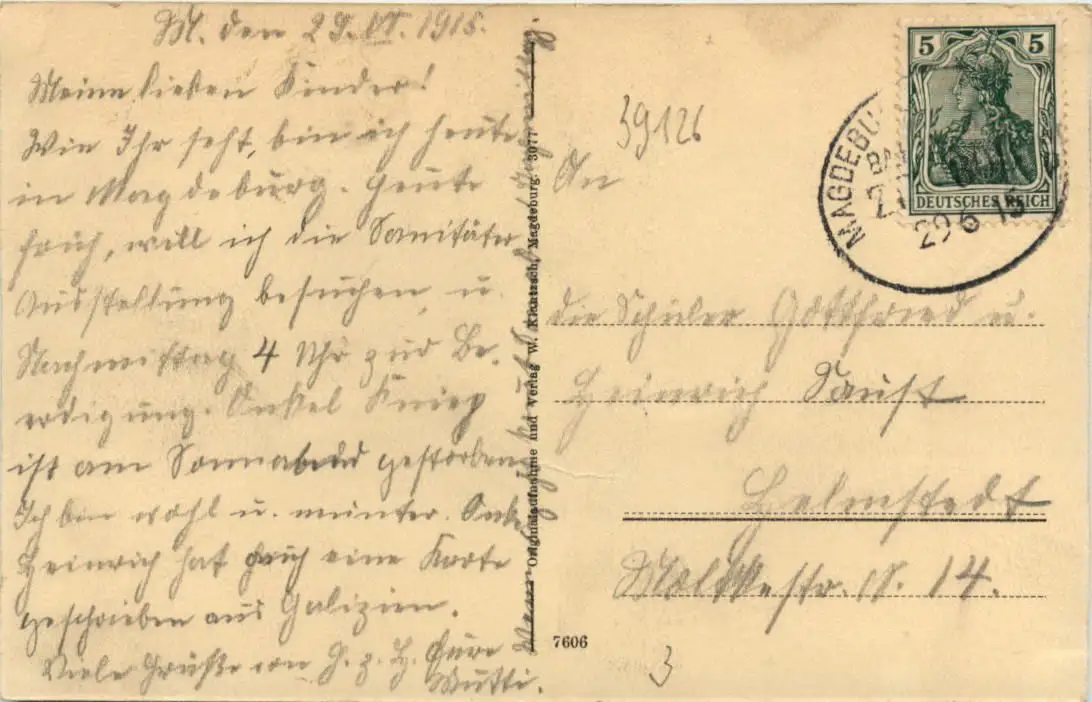 M. den 29. VI. 1915.
Meine lieben Kinder!
Wie Ihr seht, bin ich heute
in Magdeburg. Heute
früh, will ich die Sanitäter
Ausstellung besuchen, u.
Nachmittag 4 Uhr zur Be-
erdigung. Onkel
ist am Sonnabend gestorben.
Ich bin wohl u. munter. Onkel
Heinrich hat eine Karte
geschrieben aus Galizien.
Viele Grüße von H. z. H. Eure
Mutti.
Originalaufnahme und Verlag W. Magdeburg. 3077
7606
39126
An
die Schüler Gottfried u.
Heinrich
Helmstedt
Moltkestr. 14.
3
5 5
DEUTSCHES REICH
MAGDEBU
29 6 15